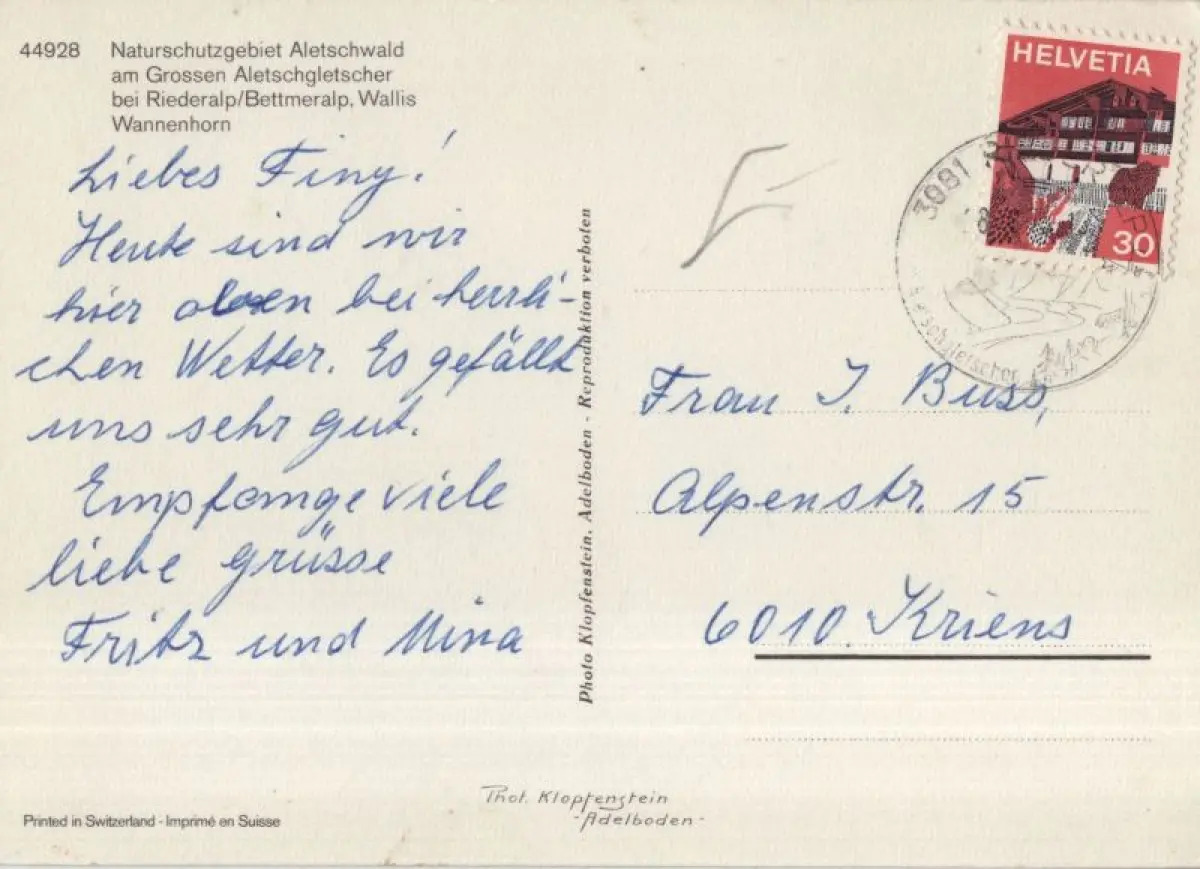 44928 Naturschutzgebiet Aletschwald
am Grossen Aletschgletscher
bei Riederalp/Bettmeralp, Wallis
Wannenhorn
Liebes Finy!
Heute sind wir
hier oben bei herrli-
chen Wetter. Es gefällt
uns sehr gut.
Empfange viele
liebe Grüsse
Fritz und Mina
Photo Klopfenstein, Adelboden - Reproduktion verboten
HELVETIA
30
3981
Frau I. Buss,
Alpenstr. 15
6010 Kriens
Phot. Klopfenstein
-Adelboden-
Printed in Switzerland - Imprimé en Suisse